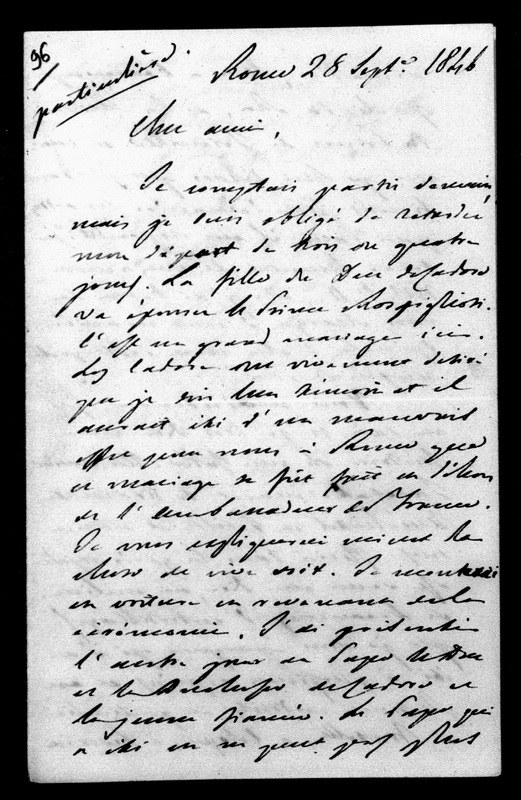 96
particulière
Rome 28 Sept. 1846
Cher ami,
Je comptais partir demain
mais je suis obligé de retarder
mon départ de trois ou quatre
jours. La fille du Duc de Cadore
va épouser le Prince Rospigliosi.
C'est un grand mariage ici.
Les Cadore ont vivement désiré
que je sois leur témoin et il
aurait été d'un mauvais
effet pour nous à Rome que
ce mariage se fût fait en l'absence
de l'Ambassadeur de France.
Je vous expliquerai mieux la
chose de vive voix. Je monterai
en voiture en revenant de la
cérémonie. J'ai présenté
l'autre jour au Pape le Duc
et la Duchesse de Cadore et
la jeune fiancée. Le Pape qui
a été on ne peut pas plus